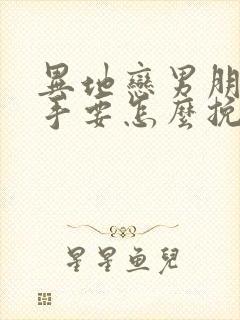 異地戀男朋
手要怎麼挽
星星魚兒